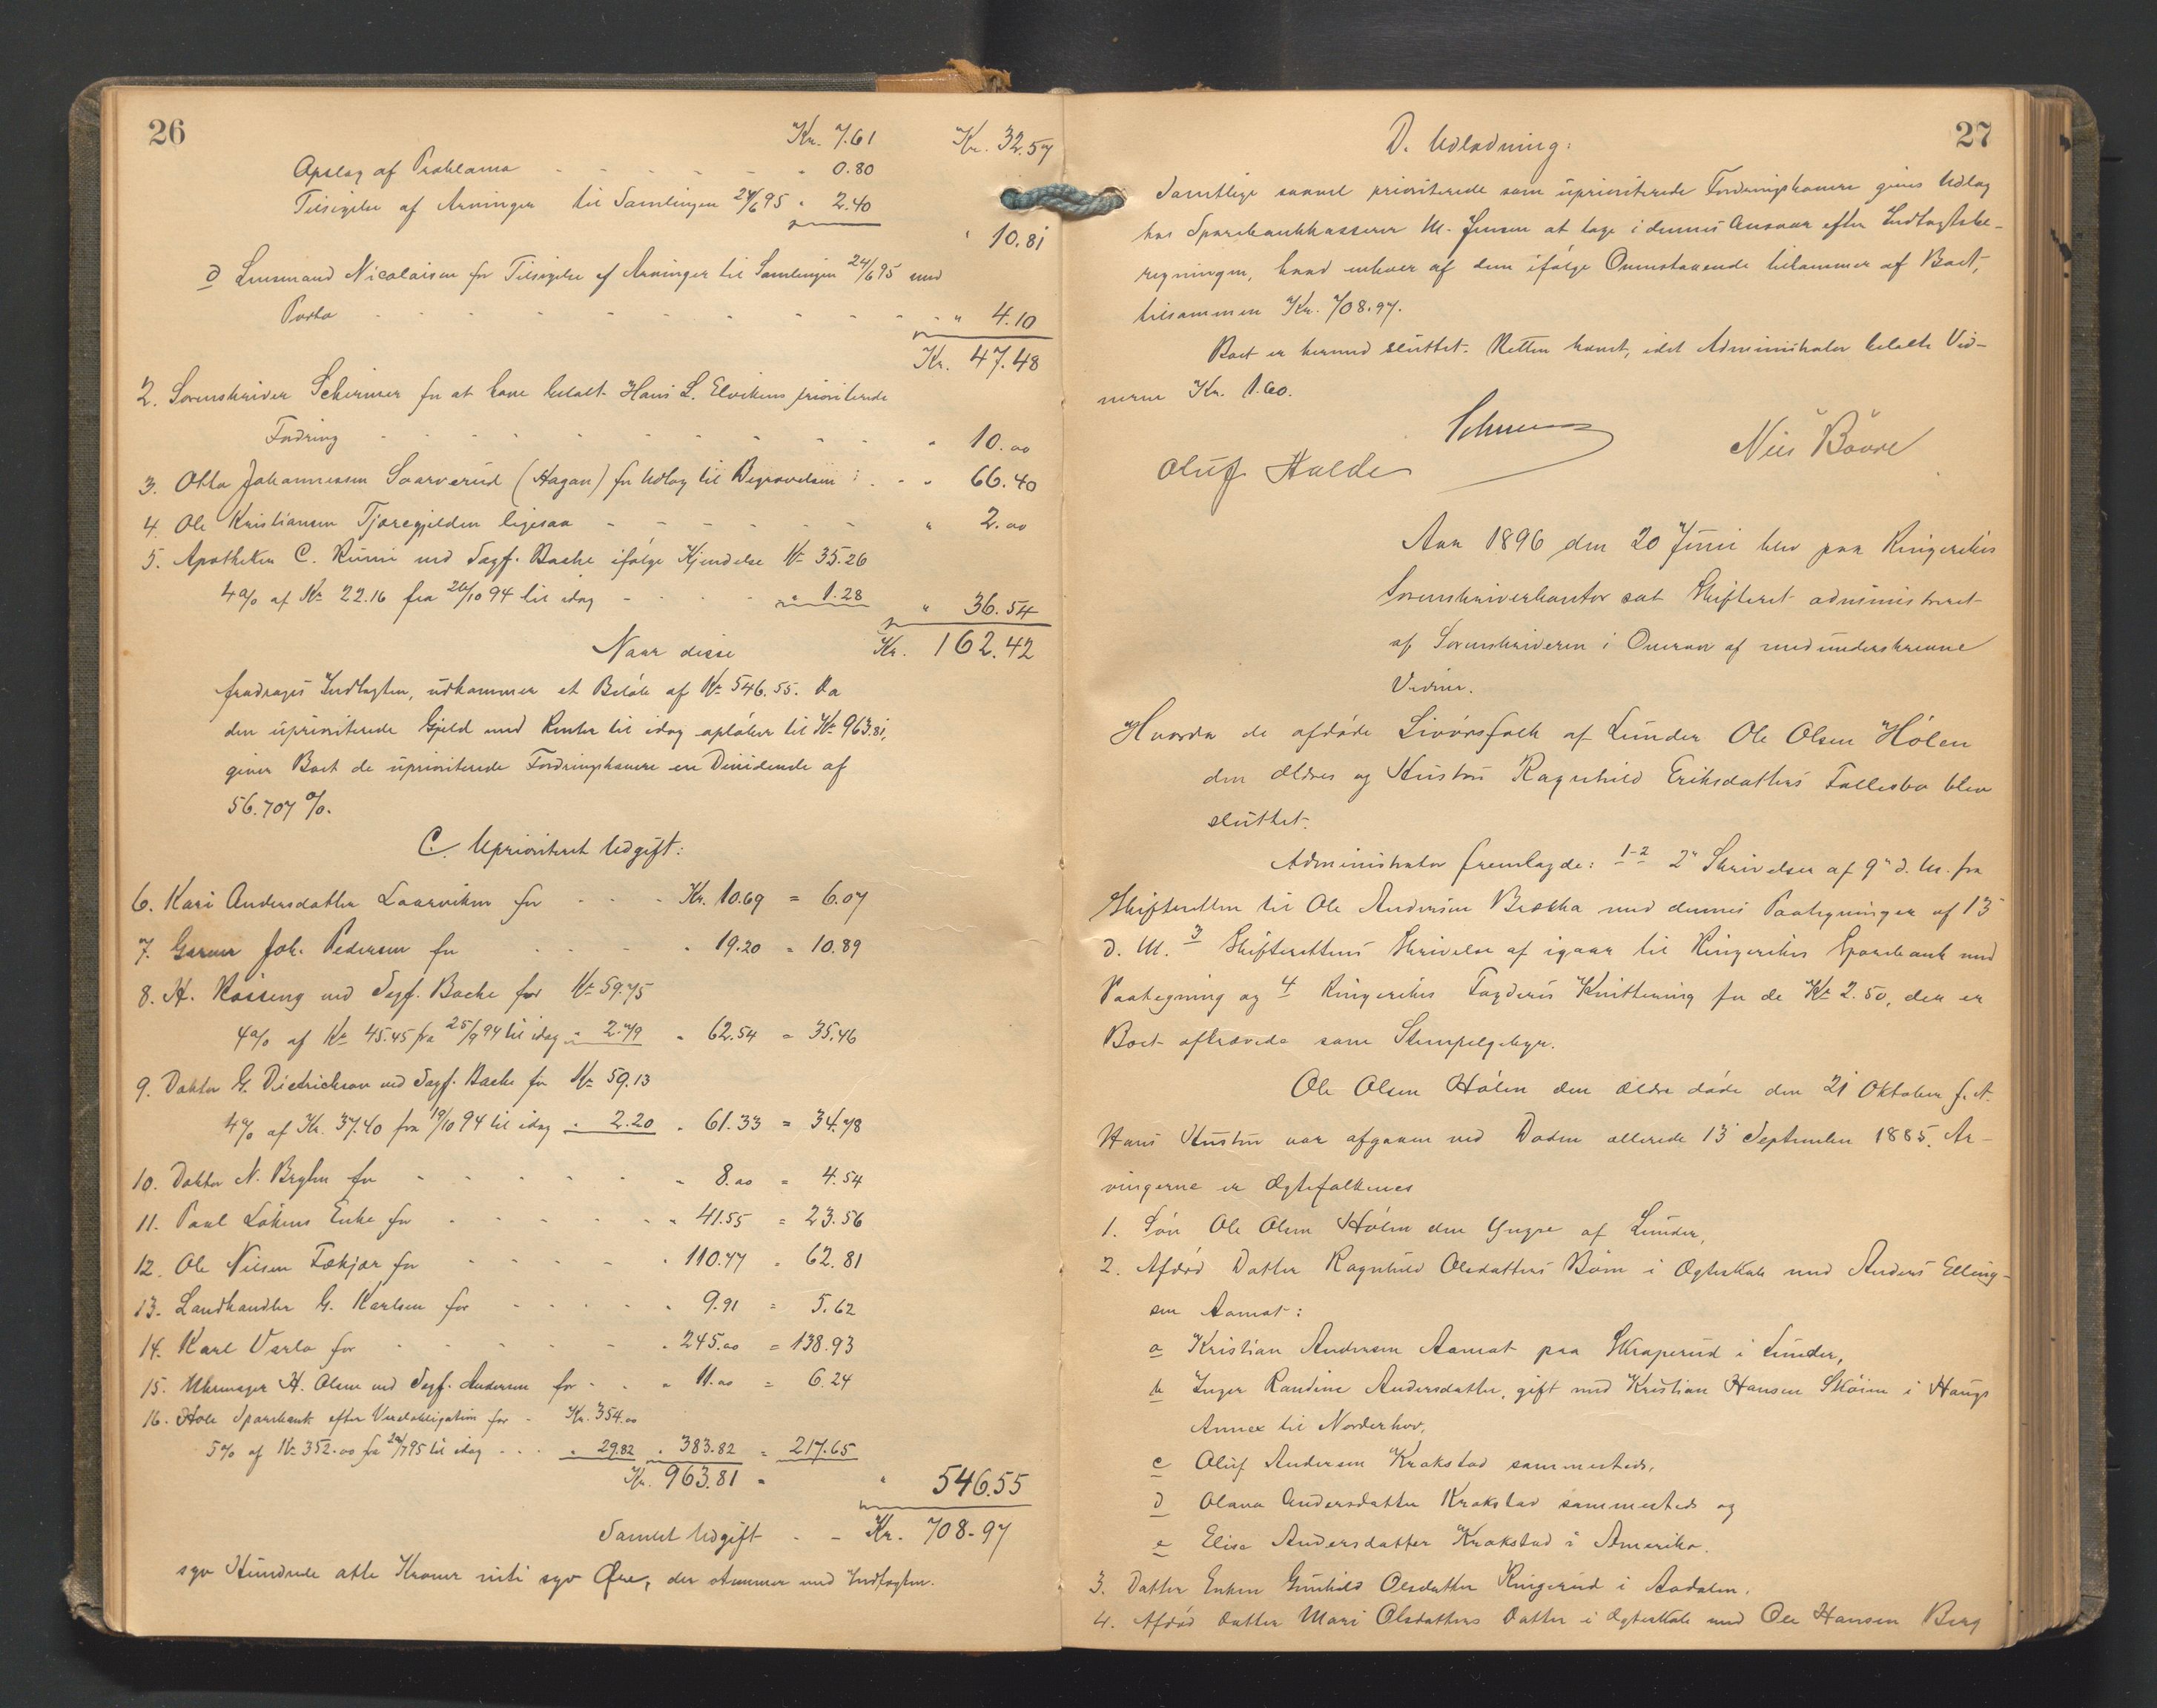 26
Kr. 7.61 Kr. 32.57
Opslag af Proklama - - - - - " 0.80
Tilsigelse af Arvinger til Samlingen 24/6 95 " 2.40
" 10.81
d Lensmand Nicolaisen for Tilsigelse af Arvinger til Samlingen 24/6 95 med
Porto - - - - - - - - - " 4.10
Kr. 47.48
2. Sorenskriver Schirmer for at have betalt Hans L. Elvikens prioriterede
Fordring - - - - - - - - " 10.00
3. Otto Johannessen Saarverud (Hagan) for Udlæg til Begravelsen : . - " 66.40
4. Ole Kristiansen Tjæregjelden ligesaa - - - - - " 2.00
5. Apotheker C. Riini ved Sagf. Bache ifølge Kjendelse Kr 35.26
4% af Kr 22.16 fra 26/10 94 til idag - - - " 1.28 " 36.54
Naar disse Kr. 162.42
fradrages Indtægten, udkommer et Beløb af Kr 546.55. Da
den uprioriterede Gjeld med Renter til idag opløber til Kr 963.81,
giver Boet de uprioriterede Fordringshavere en Dividende af
56.707 %.
C. Uprioriteret Udgift:
6. Kari Andersdatter Laarviken for - - - Kr. 10.69 = 6.07
7. Garver Joh. Pedersen for - - - - " 19.20 = 10.89
8. H. Røsseng ved Sagf. Bache for Kr 59.75
4% af Kr 45.45 fra 25/9 94 til idag " 2.79 " 62.54 = 35.46
9. Doktor G. Dietrichson ved Sagf. Bache for Kr 59.13
4% af Kr. 37.40 fra 19/10 94 til idag " 2.20 " 61.33 = 34.78
10. Doktor N. Bryhn for - - - - - " 8.00 = 4.54
11. Paul Løkens Enke for - - - - " 41.55 = 23.56
12. Ole Nilsen Tækjær for - - - - " 110.77 = 62.81
13. Landhandler G. Karlsen for - - - - " 9.91 = 5.62
14. Karl Verlo for - - - - - " 245.00 = 138.93
15. Uhrmager H. Olsen ved Sagf. Andersen for - - " 11.00 = 6.24
16. Hole Sparebank efter Vexelobligation for - Kr. 354.00
5% af Kr 352.00 fra 20/7 95 til idag - - - " 29.82 " 383.82 = 217.65
Kr. 963.81 = " 546.55
Samlet Udgift - - Kr. 708.97
syv Hundrede otte Kroner niti syv Øre, der stemmer med Indtægten.
27
D. Udlodning:
Samtlige saavel prioriterede som uprioriterede Fordringshavere gives Udlæg
hos Sparebankkasserer M. Jensen at tage i dennes Ansvar efter Indtægtsbe-
regningen, hvad enhver af dem ifølge Ovenstaaende tilkommer af Boet,
tilsammen Kr. 708.97.
Boet er hermed sluttet. Retten hævet, idet Administrator betalte Vid-
nerne Kr. 1.60.
Schirmer
Oluf Halde Nils Bövre
Aar 1896 den 20 Juni blev paa Ringerikes
Sorenskriverkontor sat Skifteret administreret
af Sorenskriveren i Overvær af medunderskrevne
Vidner.
Hvorda de afdøde Livørsfolk af Lunder Ole Olsen Hölen
den ældres og Hustru Ragnhild Eriksdatters Fællesbo blev
sluttet.
Administrator fremlagde: 1-2 2de Skrivelser af 9de d. M. fra
Skifteretten til Ole Andersen Brækka med dennes Paategninger af 13
d. M. 3 Skifterettens Skrivelse af igaar til Ringerikes Sparebank med
Paategning og 4 Ringerikes Fogderis Kvittering for de Kr 2.50, der er
Boet afkrævede som Stempelgebyr.
Ole Olsen Hölen den ældre døde den 21 Oktober f. A.
Hans Hustru var afgaaen ved Døden allerede 13 September 1885. Ar-
vingerne er Ægtefolkenes
1. Søn Ole Olsen Hölen den Yngre af Lunder,
2. Afdød Datter Ragnhild Olsdatters Børn i Ægteskab med Anders Elling-
sen Aamot:
a Kristian Andersen Aamot paa Skraperud i Lunder,
b Inger Randine Andersdatter, gift med Kristian Hansen Skøien i Haugs
Annex til Norderhov,
c Oluf Andersen Krakstad sammesteds,
d Olava Andersdatter Krakstad sammesteds og
e Elise Andersdatter Krakstad i Amerika.
3. Datter Enken Gunhild Olsdatter Ringerud i Aadalen.
4. Afdød Datter Mari Olsdatters Datter i Ægteskab med Ole Hansen Berg